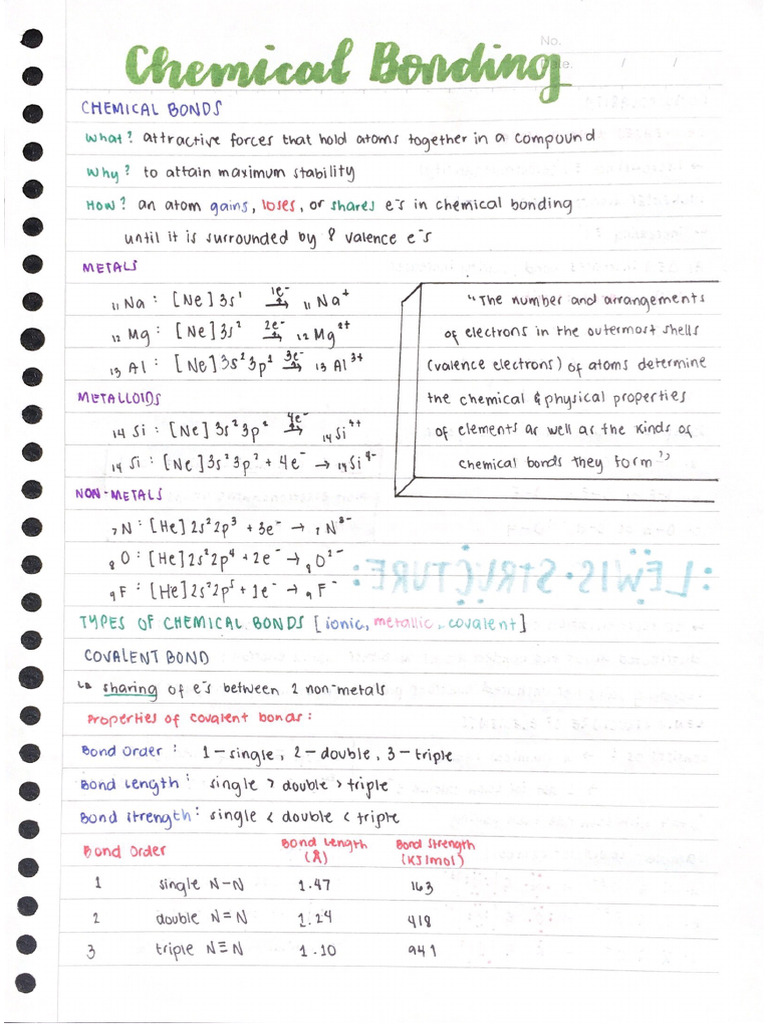 No.
Date. / /
Chemical Bonding
CHEMICAL BONDS
What? attractive forces that hold atoms together in a compound
Why? to attain maximum stability
How? an atom gains, loses, or shares e⁻s in chemical bonding
until it is surrounded by 8 valence e⁻s
METALS
₁₁Na : [Ne] 3s¹ 1e⁻→ ₁₁Na⁺
₁₂Mg : [Ne] 3s² 2e⁻→ ₁₂Mg²⁺
₁₃Al : [Ne] 3s²3p¹ 3e⁻→ ₁₃Al³⁺
"The number and arrangements
of electrons in the outermost shells
(valence electrons) of atoms determine
the chemical & physical properties
of elements as well as the kinds of
chemical bonds they form"
METALLOIDS
₁₄Si : [Ne] 3s²3p² 4e⁻→ ₁₄Si⁴⁺
₁₄Si : [Ne] 3s²3p² + 4e⁻ → ₁₄Si⁴⁻
NON-METALS
₇N : [He] 2s²2p³ + 3e⁻ → ₇N³⁻
₈O : [He] 2s²2p⁴ + 2e⁻ → ₈O²⁻
₉F : [He] 2s²2p⁵ + 1e⁻ → ₉F⁻
:LEWIS·STRUCTURE:
TYPES OF CHEMICAL BONDS [ionic, metallic, covalent]
COVALENT BOND
↳ sharing of e⁻s between 2 non-metals
Properties of covalent bonds:
Bond Order : 1 – single, 2 – double, 3 – triple
Bond Length : single > double > triple
Bond Strength : single < double < triple
Bond Order Bond Length (Å) Bond Strength (KJ/mol)
1 single N–N 1.47 163
2 double N=N 1.24 418
3 triple N≡N 1.10 941